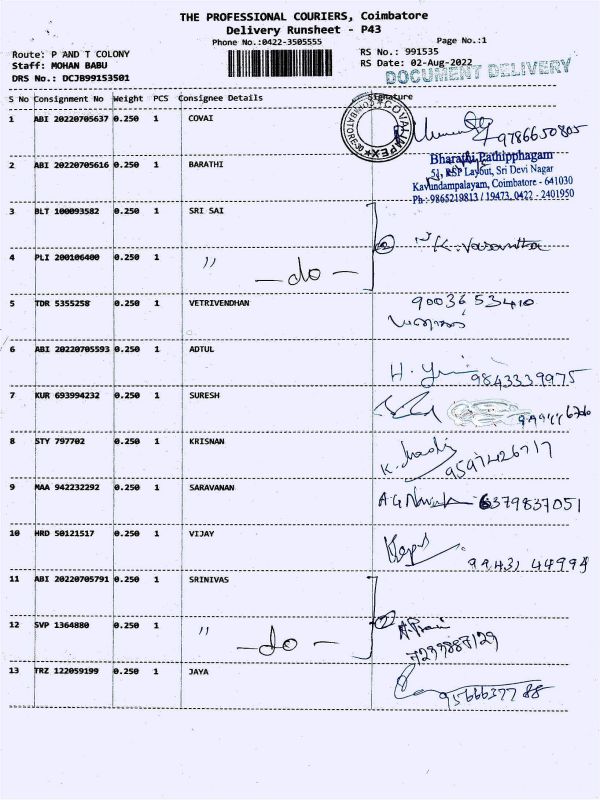 THE PROFESSIONAL COURIERS, Coimbatore
Delivery Runsheet - P43
Phone No.:0422-3505555
Page No.:1
Route: P AND T COLONY
Staff: MOHAN BABU
DRS No.: DCJB99153501
RS No.: 991535
RS Date: 02-Aug-2022
DOCUMENT DELIVERY
S No Consignment No Weight PCS Consignee Details Signature
1 ABI 20220705637 0.250 1 COVAI
COVAI IMPEX
9786650805
2 ABI 20220705616 0.250 1 BARATHI
Bharathi Pathipphagam
51, KSP Layout, Sri Devi Nagar
Kavundampalayam, Coimbatore - 641030
Ph.:9865219813 / 19473, 0422 - 2401950
3 BLT 100093582 0.250 1 SRI SAI
2 K. Vasantha
4 PLI 200106400 0.250 1 〃 — do —
5 TDR 5355258 0.250 1 VETRIVENDHAN 9003653410
6 ABI 20220705593 0.250 1 ADTUL
9843339975
7 KUR 693994232 0.250 1 SURESH
8 STY 797702 0.250 1 KRISNAN
9597426717
9 MAA 942232292 0.250 1 SARAVANAN 6379837051
10 HRD 50121517 0.250 1 VIJAY
99431 44994
11 ABI 20220705791 0.250 1 SRINIVAS
2
12 SVP 1364880 0.250 1 〃 — do —
13 TRZ 122059199 0.250 1 JAYA